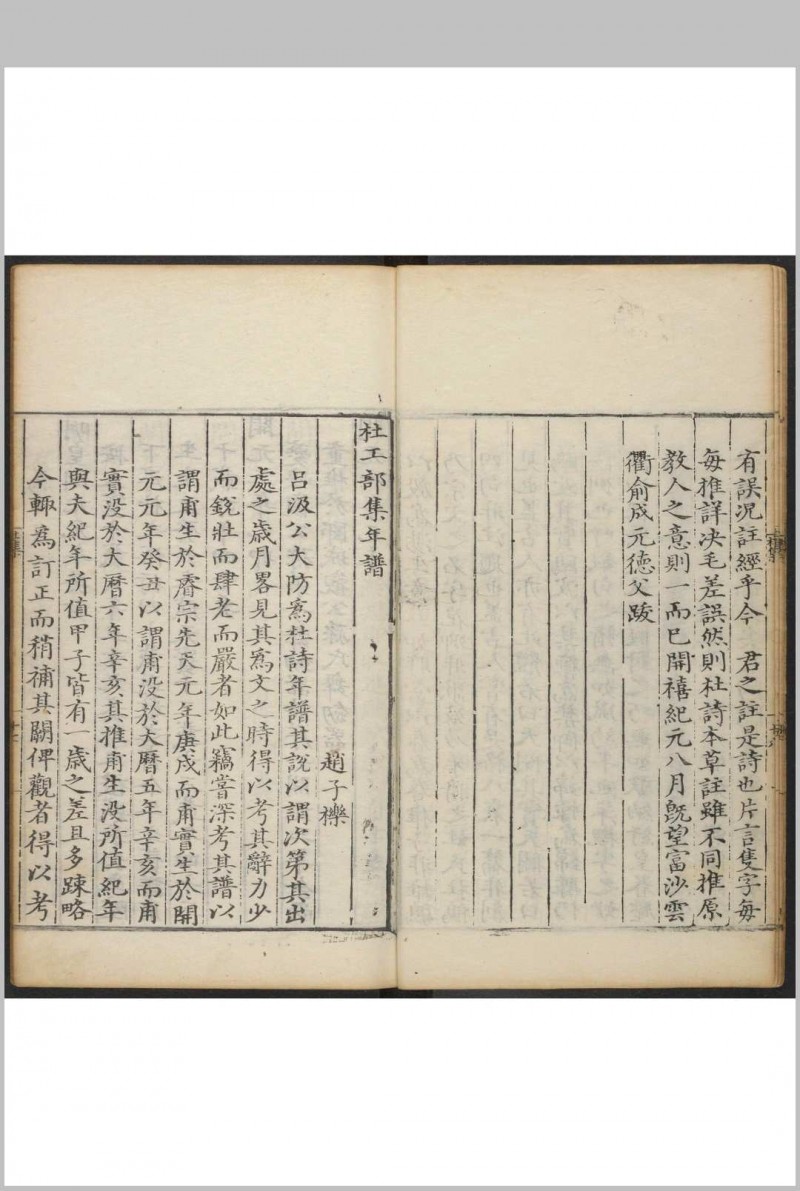 有誤況註經乎今　君之註是詩也片言隻字每
每推詳决毛差誤然則杜詩本草註雖不同推原
教人之意則一而已開禧紀元八月旣望富沙雲
衢俞成元德父跋
杜工部集年譜
趙子櫟
呂汲公大防爲杜詩年譜其說以謂次第其出
處之歲月畧見其爲文之時得以考其辭力少
而銳壯而肆老而嚴者如此竊嘗深考其譜以
謂甫生於睿宗先天元年庚戌而甫實生於開
元元年癸丑以謂甫没於大曆五年辛亥而甫
實没於大曆六年辛亥其推甫生没所值紀年
與夫紀年所值甲子皆有一歲之差且多踈略
今輒爲訂正而稍補其闕俾觀者得以考